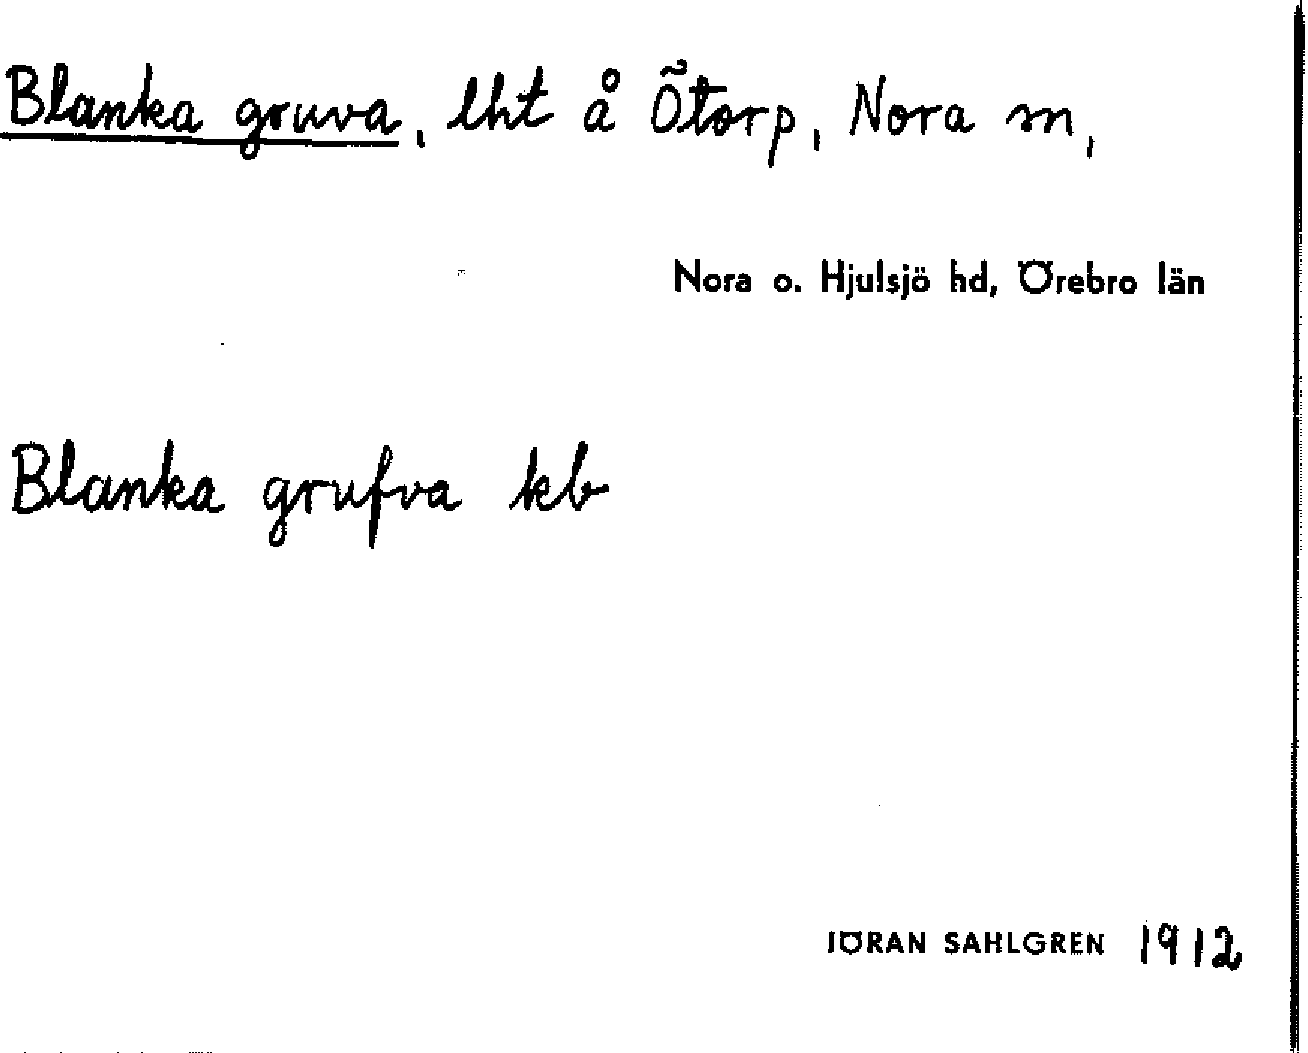 Blanka gruva, lht å Õtorp, Nora sn,
Nora o. Hjulsjö hd, Örebro län
Blanka grufva kb
JÖRAN SAHLGREN 1912